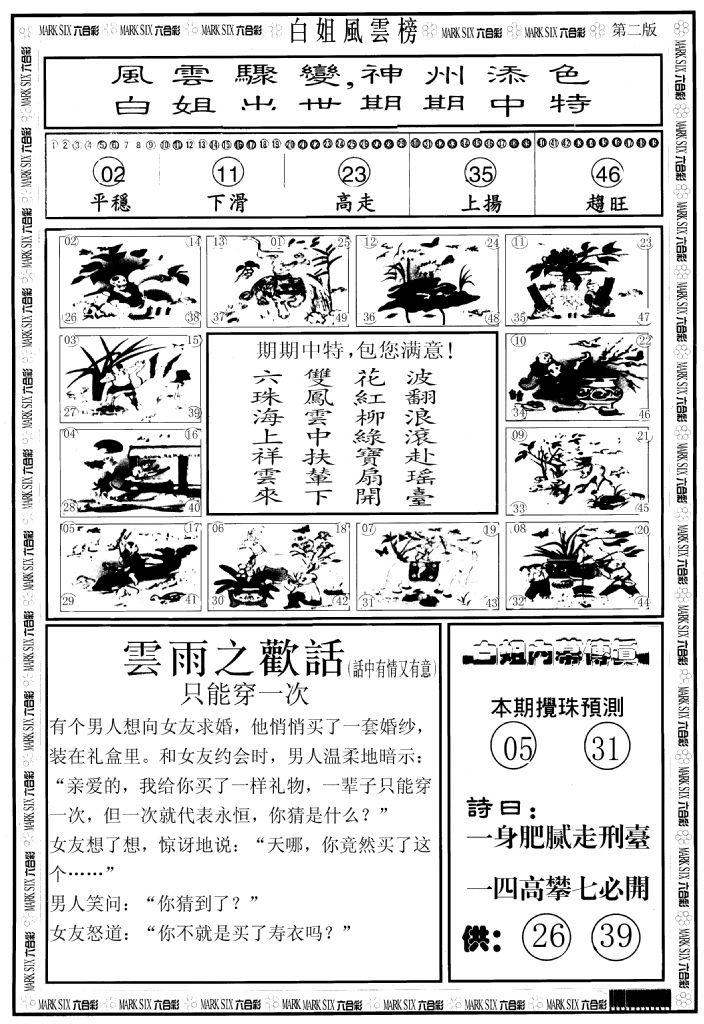 MARK SIX 六合彩 MARK SIX 六合彩 白姐風雲榜 MARK SIX 六合彩 MARK SIX 六合彩 第二版
風雲驟變,神州添色
白姐出世期期中特
1 2 3 4 5 6 7 8 9 10 11 12 13 14 15 16 17 18 19 20 21 22 23 24 25 26 27 28 29 30 31 32 33 34 35 36 37 38 39 40 41 42 43 44 45 46 47 48 49
02 11 23 35 46
平穩 下滑 高走 上揚 趨旺
02 14 13 01 25 12 24 11 23
26 38 37 49 36 48 35 47
03 15
27 39
04 16
28 40
期期中特,包您满意!
六珠海上祥雲來
雙鳳雲中扶輦下
花紅柳綠寶扇開
波翻浪滾赴瑶臺
10 22
34 46
09 21
33 45
05 17 06 18 07 19 08 20
29 41 30 42 31 43 32 44
雲雨之歡話(話中有情又有意)
只能穿一次
有个男人想向女友求婚，他悄悄买了一套婚纱，
装在礼盒里。和女友约会时，男人温柔地暗示：
“亲爱的，我给你买了一样礼物，一辈子只能穿
一次，但一次就代表永恒，你猜是什么？”
女友想了想，惊讶地说：“天哪，你竟然买了这
个……”
男人笑问：“你猜到了？”
女友怒道：“你不就是买了寿衣吗？”
白姐内幕傳真
本期攪珠預測
05 31
詩曰：
一身肥腻走刑臺
一四高攀七必開
供： 26 39
MARK SIX 六合彩 MARK SIX 六合彩 MARK SIX 六合彩 MARK SIX 六合彩 MARK SIX 六合彩 MARK SIX 六合彩 MARK SIX 六合彩